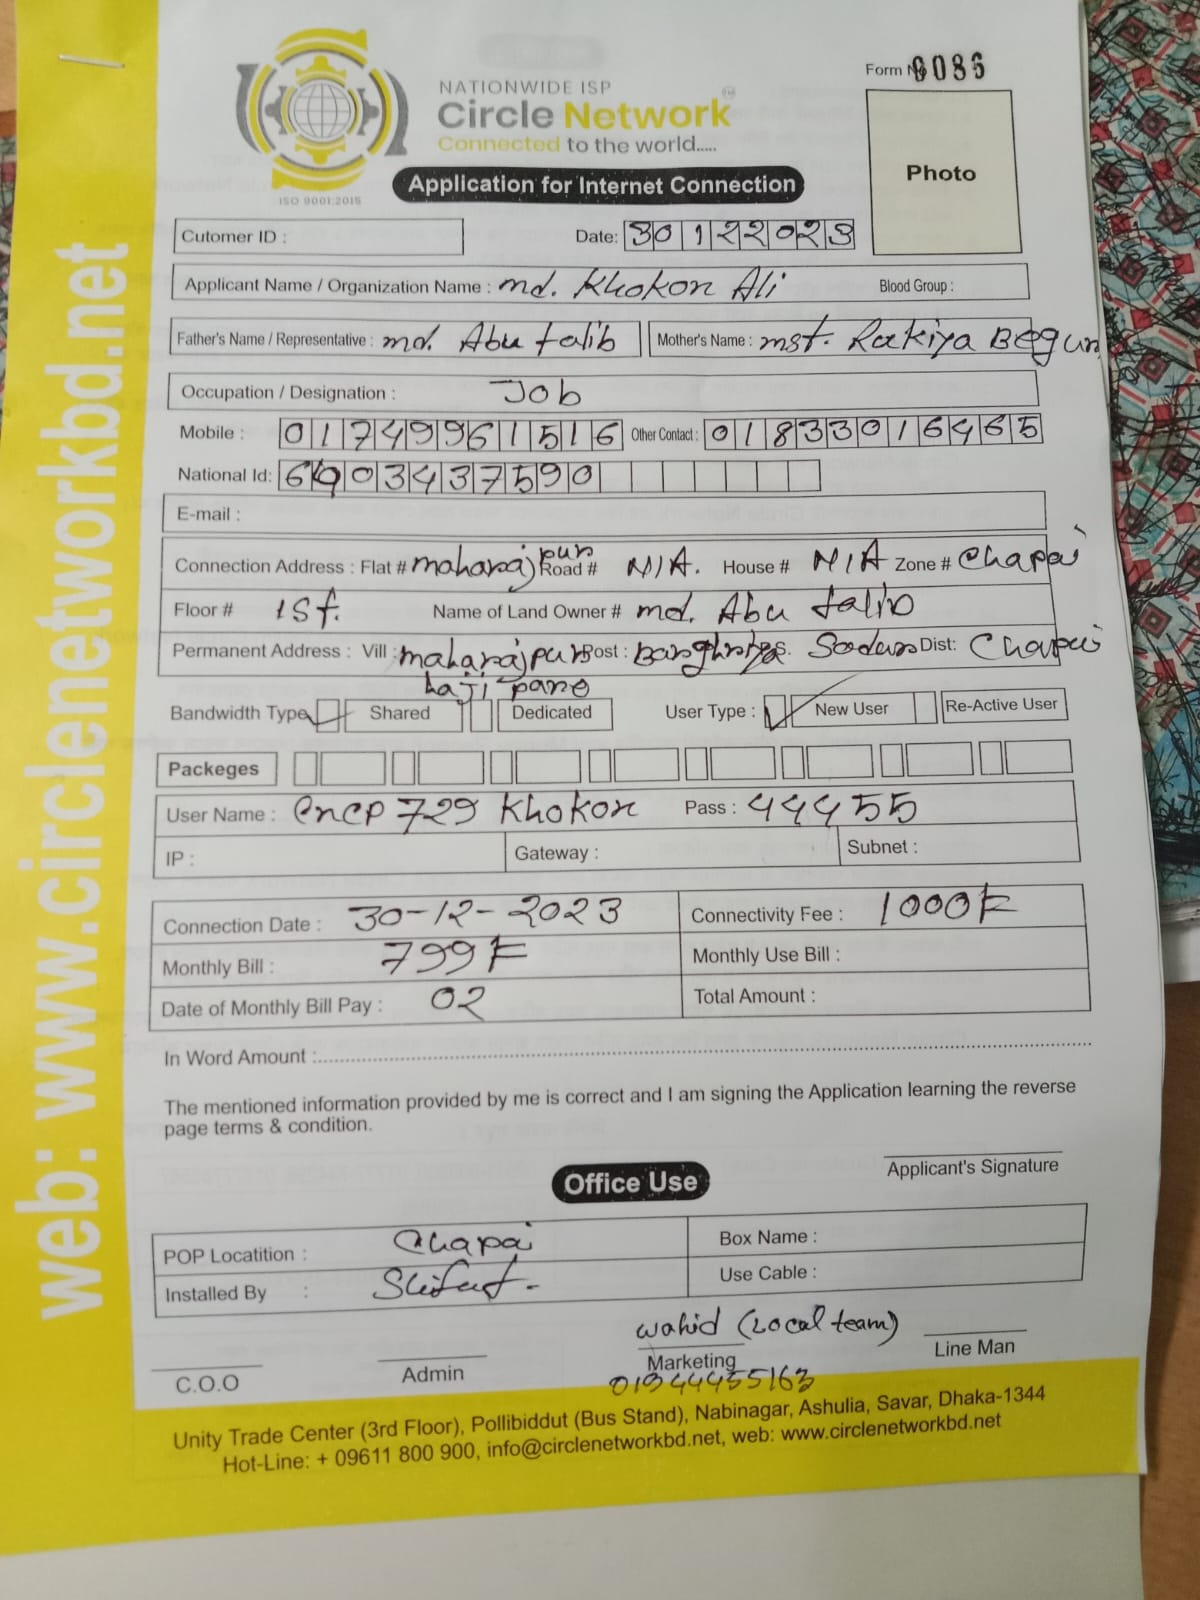 Form No 0086
NATIONWIDE ISP
Circle Network
Connected to the world.....
ISO 9001:2015
Photo
Application for Internet Connection
Cutomer ID :
Date: 30122023
Applicant Name / Organization Name : md. Khokon Ali Blood Group :
Father's Name / Representative : md. Abu talib Mother's Name : mst. Rokiya Begum
Occupation / Designation : Job
Mobile : 01749961516 Other Contact : 01833016465
National Id: 6903437590
E-mail :
Connection Address : Flat # maharajpur Road # N/A. House # N/A Zone # Chapai
Floor # 1st. Name of Land Owner # md. Abu talib
Permanent Address : Vill : maharajpur Post : P.S. Sadar Dist: Chapai
haji para
Bandwidth Type Shared Dedicated User Type : New User Re-Active User
Packeges
User Name : CNCP729 Khokon Pass : 44455
IP : Gateway : Subnet :
Connection Date : 30-12-2023 Connectivity Fee : 1000
Monthly Bill : 799 Monthly Use Bill :
Date of Monthly Bill Pay : 02 Total Amount :
In Word Amount :
The mentioned information provided by me is correct and I am signing the Application learning the reverse
page terms & condition.
Applicant's Signature
Office Use
POP Locatition : Chapai Box Name :
Installed By : Use Cable :
wahid (Local team)
C.O.O Admin Marketing Line Man
01944455163
Unity Trade Center (3rd Floor), Pollibiddut (Bus Stand), Nabinagar, Ashulia, Savar, Dhaka-1344
Hot-Line: + 09611 800 900, info@circlenetworkbd.net, web: www.circlenetworkbd.net
web: www.circlenetworkbd.net